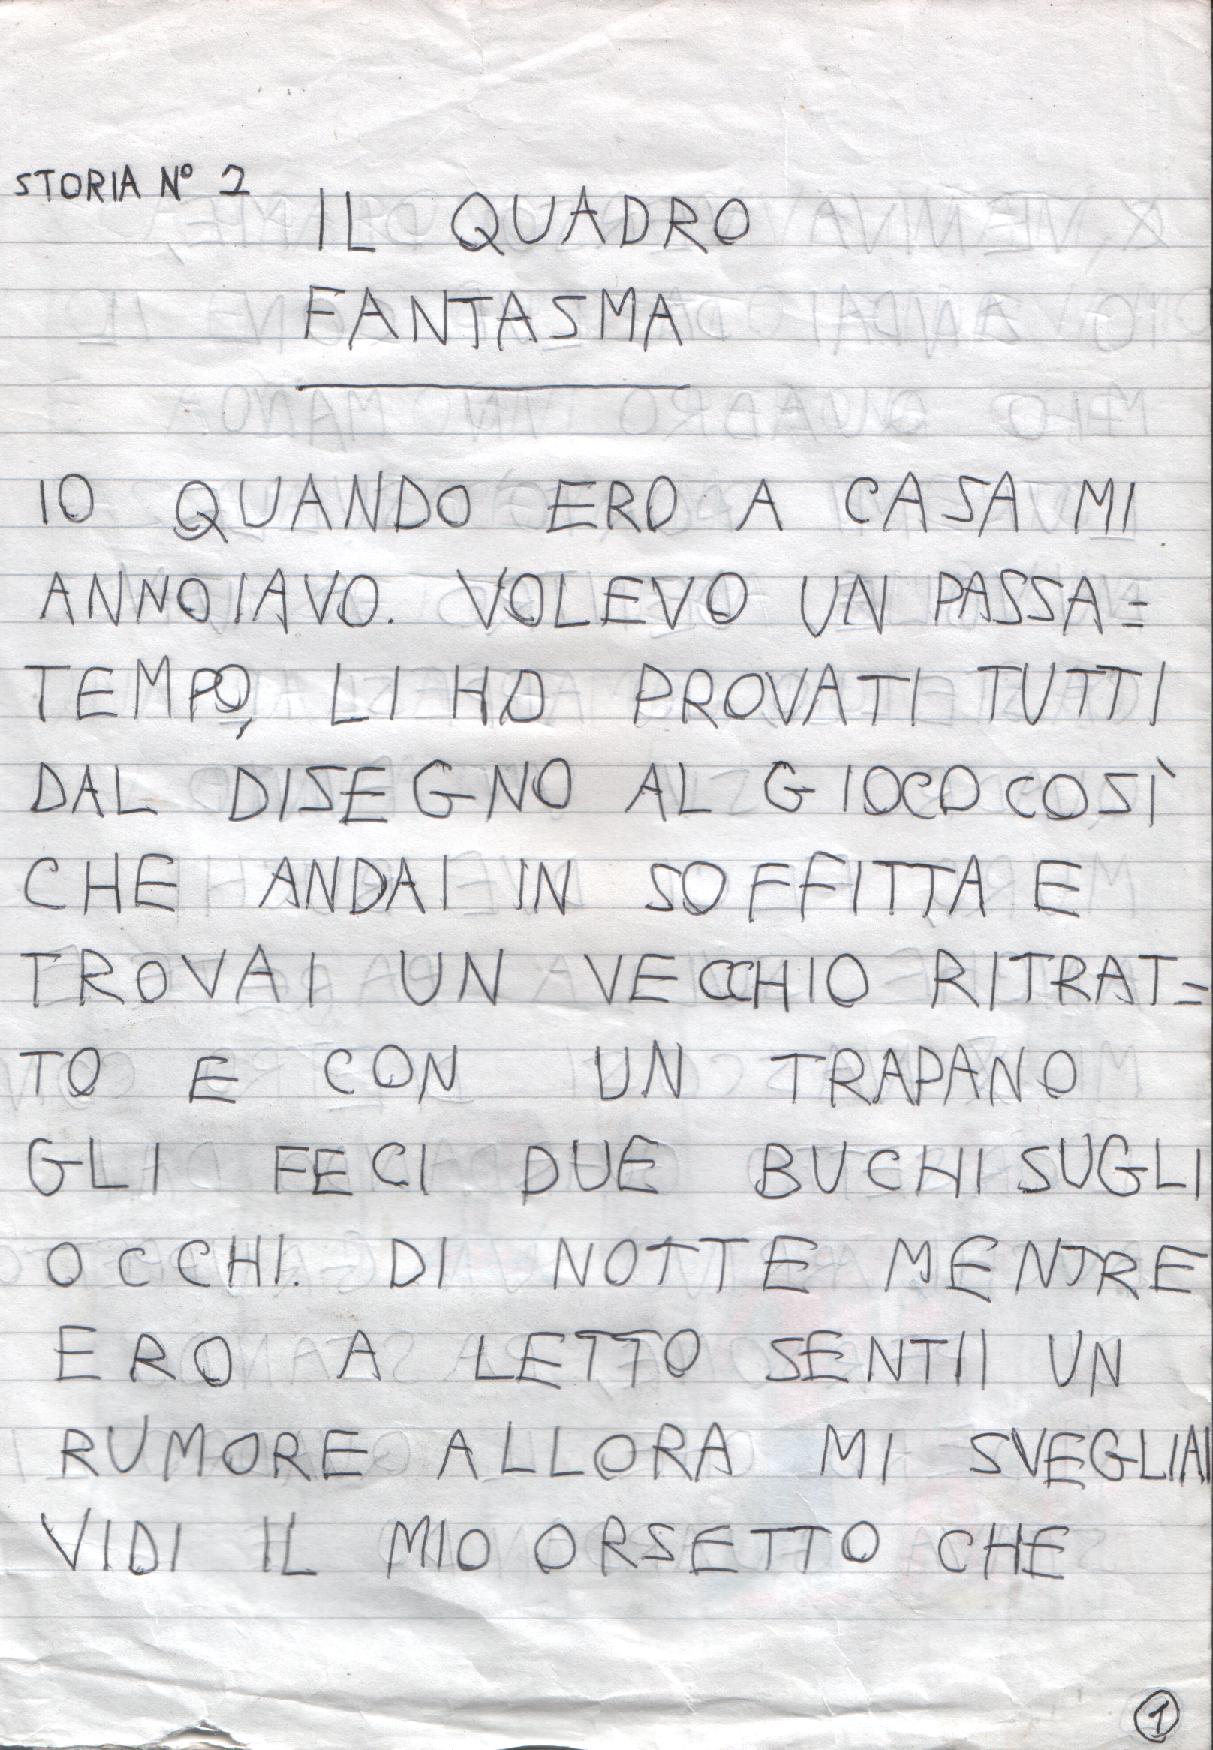 STORIA N° 2
IL QUADRO
FANTASMA
IO QUANDO ERO A CASA MI
ANNOIAVO. VOLEVO UN PASSA=
TEMPO, LI HO PROVATI TUTTI
DAL DISEGNO AL GIOCO COSÌ
CHE ANDAI IN SOFFITTA E
TROVAI UN VECCHIO RITRAT=
TO E CON UN TRAPANO
GLI FECI DUE BUCHI SUGLI
OCCHI. DI NOTTE MENTRE
ERO A LETTO SENTII UN
RUMORE ALLORA MI SVEGLIAI
VIDI IL MIO ORSETTO CHE
1